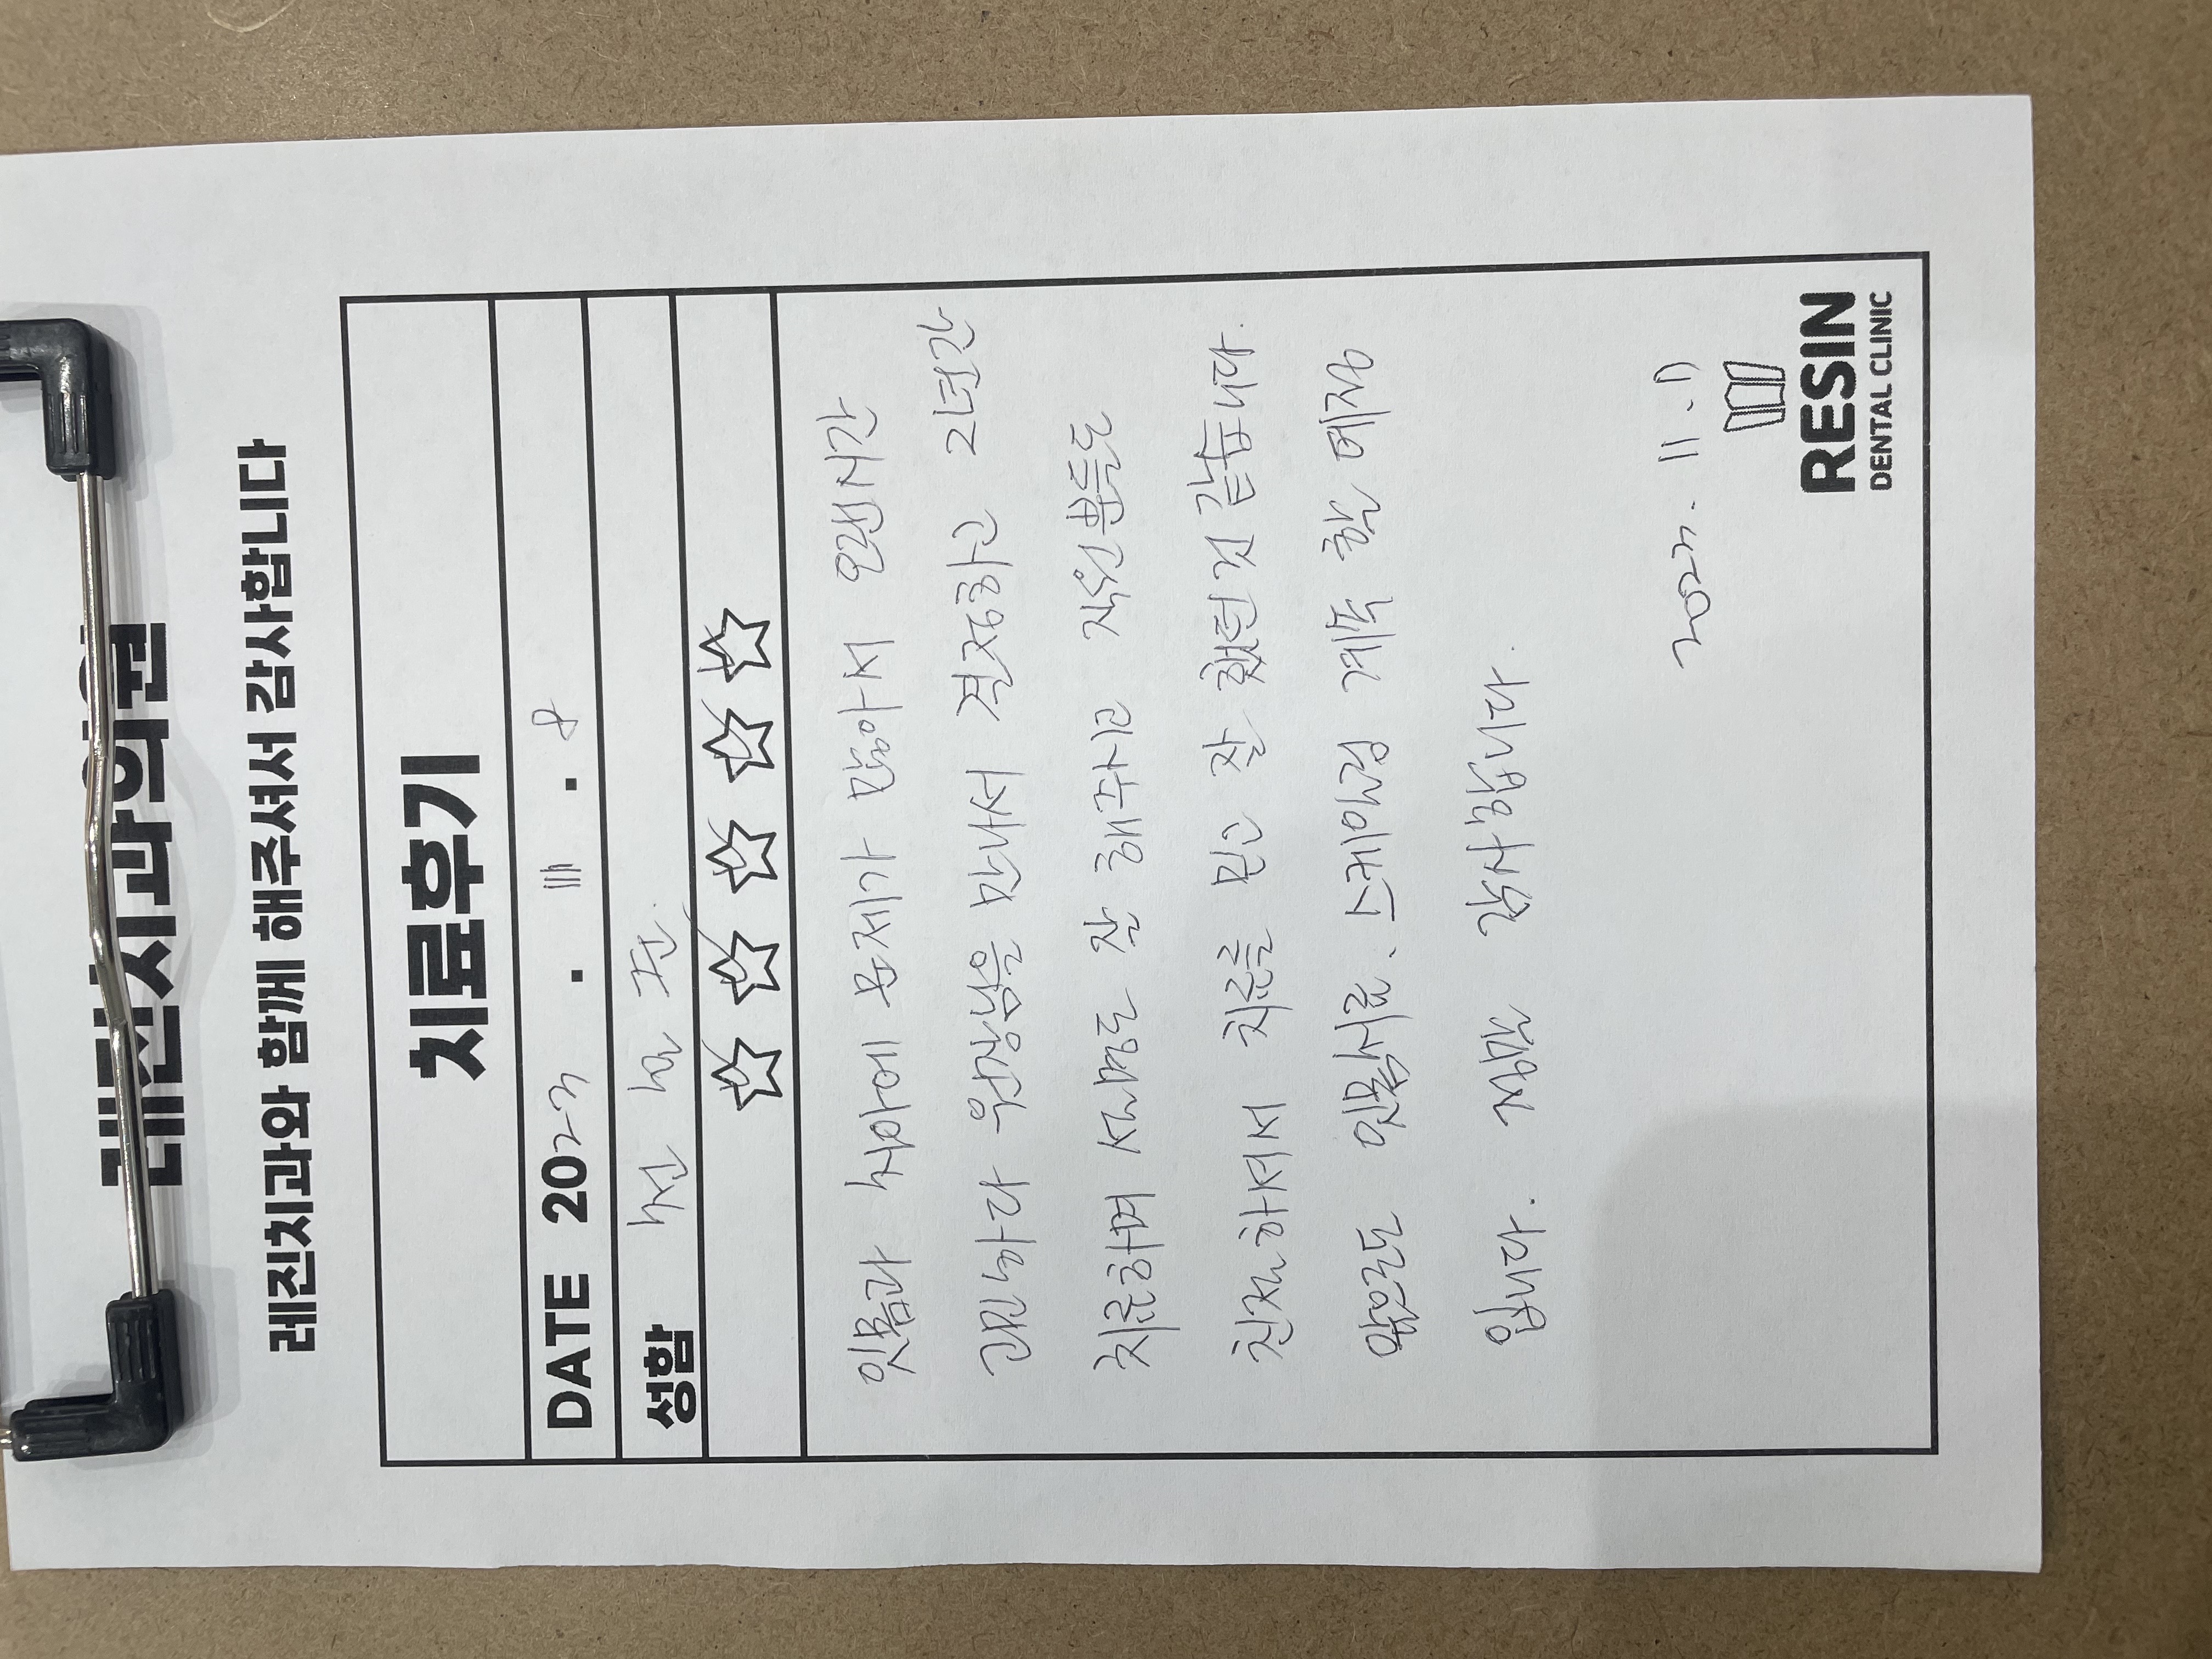 레진치과의원
레진치과와 함께 해주셔서 감사합니다
치료후기
DATE 2023 . 11 . 8
성함
☆☆☆☆☆
잇몸과 치아에 문제가 많아서 오랜시간
고민하다 원장님을 만나서 결정하고 2년간
치료하며 설명도 잘 해주시고 직원분들도
친절하셔서 치료를 받고 잘 했던것 같습니다.
앞으로도 잇몸치료, 스케일링 계속 할 예정
입니다. 정말 감사합니다.
2023. 11.
RESIN
DENTAL CLINIC